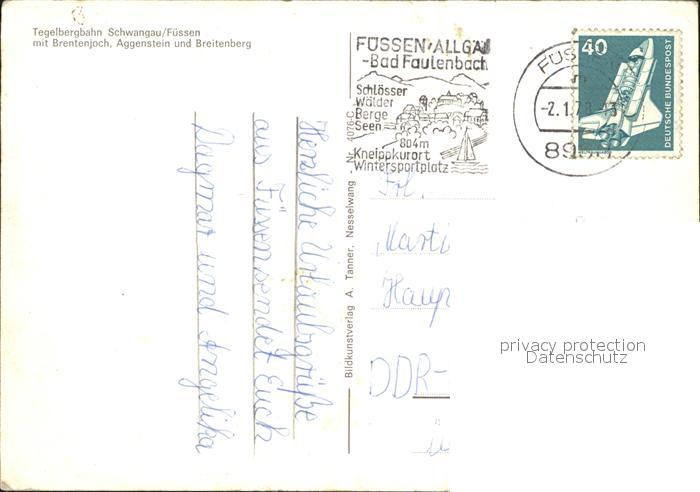 Tegelbergbahn Schwangau/Füssen
mit Brentenjoch, Aggenstein und Breitenberg
Herzliche Urlaubsgrüße
aus Füssen sendet Euch
Dagmar und Angelika
Bildkunstverlag A. Tanner, Nesselwang Nr. 4076-C
FÜSSEN/ALLGÄU
-Bad Faulenbach
Schlösser
Wälder
Berge
Seen
804m
Kneippkurort
Wintersportplatz
FÜS
-2.1.7
89
40
DEUTSCHE BUNDESPOST
Frl.
Marti
Haup
DDR-
privacy protection
Datenschutz